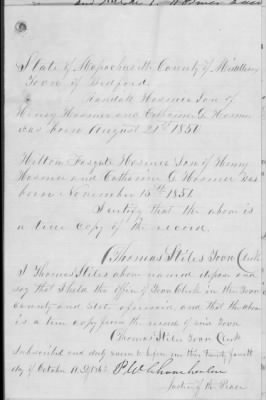 State of Massachusetts County of Middlesex
Town of Bedford.
Randall Hosmer Son of
Henry Hosmer and Catharine G. Hosmer
was born August 21st 185
Hilton Fosgate Hosmer Son of Henry
Hosmer and Catharine G Hosmer was
born November 15th 185
I certify that the above is
a true copy of the record.
Thomas Stiles Town Clerk
I Thomas Stiles above named depose and
say that I hold the office of Town Clerk in the Town
County and State aforesaid, and that the above
is a true copy from the record of said Town
Thomas Stiles Town Clerk
Subscribed and duly sworn to before me this Twenty fourth
day of October A.D. 186
P. W. Chamberlin
Justice of the Peace